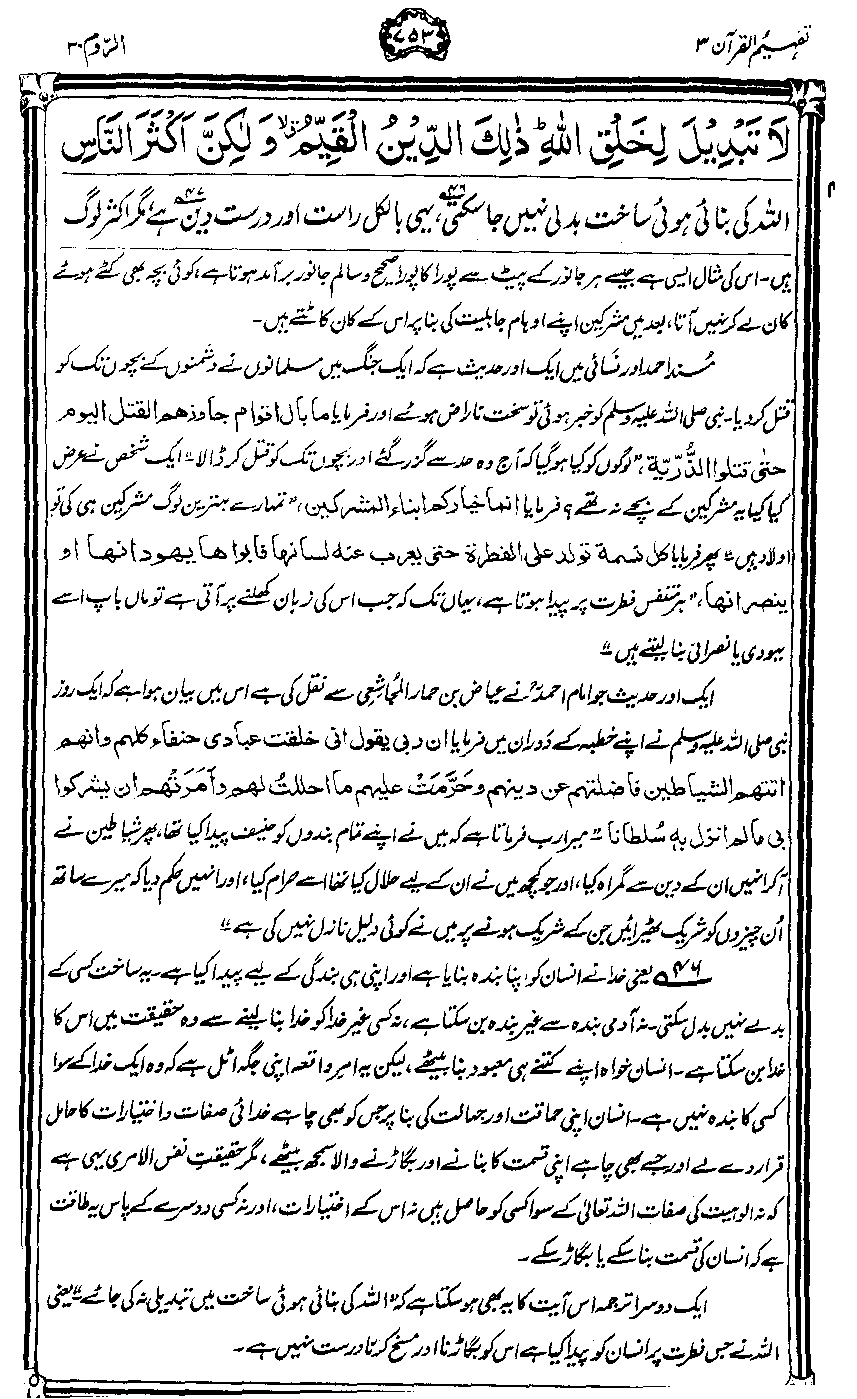 تفہیم القرآن ۳
۷۵۳
الرّوم ۳۰
لَا تَبْدِيْلَ لِخَلْقِ اللّٰهِ ؕ ذٰلِكَ الدِّيْنُ الْقَيِّمُ ۙۗ وَلٰكِنَّ اَكْثَرَ النَّاسِ
اللہ کی بنائی ہوئی ساخت بدلی نہیں جا سکتی۴۶، یہی بالکل راست اور درست دین۴۷ ہے، مگر اکثر لوگ
ہیں۔ اس کی مثال ایسی ہے جیسے ہر جانور کے پیٹ سے پورا کا پورا صحیح و سالم جانور برآمد ہوتا ہے، کوئی بچہ بھی کٹے ہوئے
کان لے کر نہیں آتا، بعد میں مشرکین اپنے اوہام جاہلیت کی بنا پر اس کے کان کاٹتے ہیں۔
مُسند احمد اور نَسائی میں ایک اور حدیث ہے کہ ایک جنگ میں مسلمانوں نے دشمنوں کے بچوں تک کو
قتل کر دیا۔ نبی صلی اللہ علیہ وسلم کو خبر ہوئی تو سخت ناراض ہوئے اور فرمایا ما بال اقوام جاوزھم القتل الیوم
حتی قتلوا الذُّرِّیّة، ”لوگوں کو کیا ہو گیا کہ آج وہ حد سے گزر گئے اور بچوں تک کو قتل کر ڈالا۔“ ایک شخص نے عرض
کیا کیا یہ مشرکین کے بچے نہ تھے؟ فرمایا انما خیارکم ابناء المشرکین، ”تمہارے بہترین لوگ مشرکین ہی کی تو
اولاد ہیں“ پھر فرمایا کل نسمة تولد علی الفطرة حتی یعرب عنه لسانها فابواها یھودانها او
ینصرانها، ”ہر متنفس فطرت پر پیدا ہوتا ہے، یہاں تک کہ جب اس کی زبان کھلنے پر آتی ہے تو ماں باپ اسے
یہودی یا نصرانی بنا لیتے ہیں“
ایک اور حدیث جو امام احمدؒ نے عیاض بن حمار المُجاشعِی سے نقل کی ہے اس میں بیان ہوا ہے کہ ایک روز
نبی صلی اللہ علیہ وسلم نے اپنے خطبہ کے دَوران میں فرمایا ان ربی یقول انی خلقت عبادی حنفاء کلھم وانھم
اتتھم الشیاطین فاضلتھم عن دینھم وحَرَّمَتْ علیھم ما احللتُ لھم وأمَرَتْھُم ان یشرکوا
بی مالم انزل بہٖ سُلطانا۔ ”میرا رب فرماتا ہے کہ میں نے اپنے تمام بندوں کو حنیف پیدا کیا تھا، پھر شیاطین نے
آ کر انہیں ان کے دین سے گمراہ کیا، اور جو کچھ میں نے ان کے لیے حلال کیا تھا اسے حرام کیا، اور انہیں حکم دیا کہ میرے ساتھ
اُن چیزوں کو شریک ٹھیرائیں جن کے شریک ہونے پر میں نے کوئی دلیل نازل نہیں کی ہے“
۴۶ یعنی خدا نے انسان کو اپنا بندہ بنایا ہے اور اپنی ہی بندگی کے لیے پیدا کیا ہے۔ یہ ساخت کسی کے
بدلے نہیں بدل سکتی۔ نہ آدمی بندہ سے غیر بندہ بن سکتا ہے، نہ کسی غیر خدا کو خدا بنا لینے سے وہ حقیقت میں اس کا
خدا بن سکتا ہے۔ انسان خواہ اپنے کتنے ہی معبود بنا بیٹھے، لیکن یہ امر واقعہ اپنی جگہ اٹل ہے کہ وہ ایک خدا کے سوا
کسی کا بندہ نہیں ہے۔ انسان اپنی حماقت اور جہالت کی بنا پر جس کو بھی چاہے خدائی صفات و اختیارات کا حامل
قرار دے لے اور جسے بھی چاہے اپنی قسمت کا بنانے اور بگاڑنے والا سمجھ بیٹھے، مگر حقیقت نفس الامری یہی ہے
کہ نہ الوہیت کی صفات اللہ تعالیٰ کے سوا کسی کو حاصل ہیں نہ اس کے اختیارات، اور نہ کسی دوسرے کے پاس یہ طاقت
ہے کہ انسان کی قسمت بنا سکے یا بگاڑ سکے۔
ایک دوسرا ترجمہ اس آیت کا یہ بھی ہو سکتا ہے کہ ”اللہ کی بنائی ہوئی ساخت میں تبدیلی نہ کی جائے“ یعنی
اللہ نے جس فطرت پر انسان کو پیدا کیا ہے اس کو بگاڑنا اور مسخ کرنا درست نہیں ہے۔